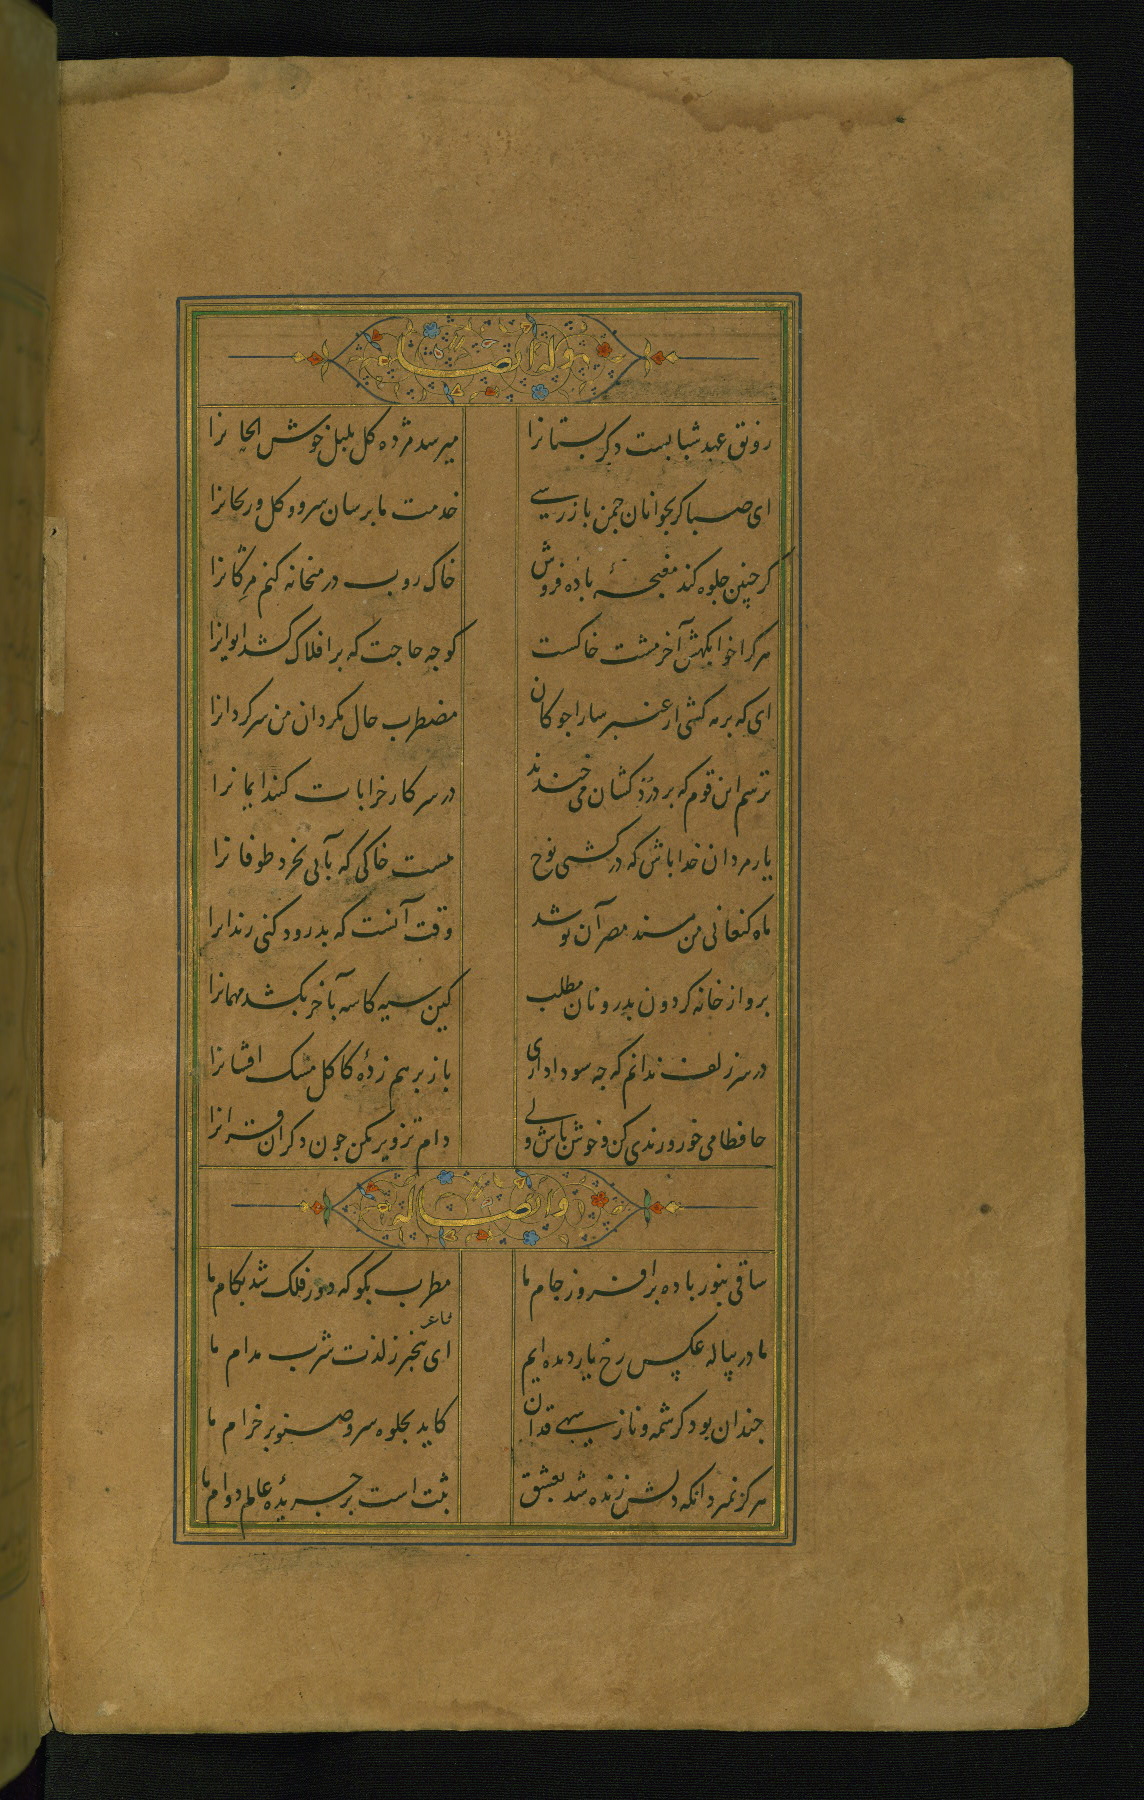 وله ایضا
رونق عهد شبابست دکر بستانرا میرسد مژده کل بلبل خوش الحانرا
ای صبا کر بجوانان جمن باز رسی خدمت ما برسان سرو و کل و ریحانرا
کر چنین جلوه کند مغبچهٔ باده فروش خاک روب در میخانه کنم مژکانرا
هر کرا خوابکهش آخر مشت خاکست کو جه حاجت که بر افلاک کشد ایوانرا
ای که بر مه کشی از عنبر سارا جوکان مضطرب حال مکردان من سرکردانرا
ترسم این قوم که بر درد کشان می خندند در سر کار خرابات کنند ایمانرا
یار مردان خدا باش که در کشتی نوح هست خاکی که بآبی نخرد طوفانرا
ماه کنعانی من مسند مصر آن تو شد وقت آنست که بدرود کنی زندانرا
برو از خانه کردون بدر و نان مطلب کین سیه کاسه بآخر بکشد مهمانرا
در سر زلف ندانم که جه سودا داری باز بر هم زدهٔ کاکل مشک افشانرا
حافظا می خور و رندی کن و خوش باش ولی دام تزویر مکن جون دکران قرآنرا
وایضا له
ساقی بنور باده برافروز جام ما مطرب بکو که دور فلک شد بکام ما
ما در پیاله عکس رخ یار دیده ایم ای بیخبر ز لذت شرب مدام ما
جندان بود کرشمه و ناز سهی قدان کاید بجلوه سرو صنوبر خرام ما
هرکز نمیرد آنکه دلش زنده شد بعشق ثبت است بر جریدهٔ عالم دوام ما